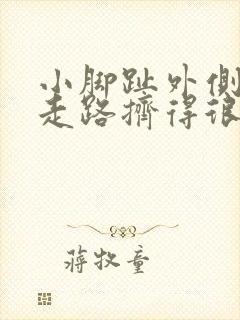 小脚趾外侧
走路挤得很
蒋牧童